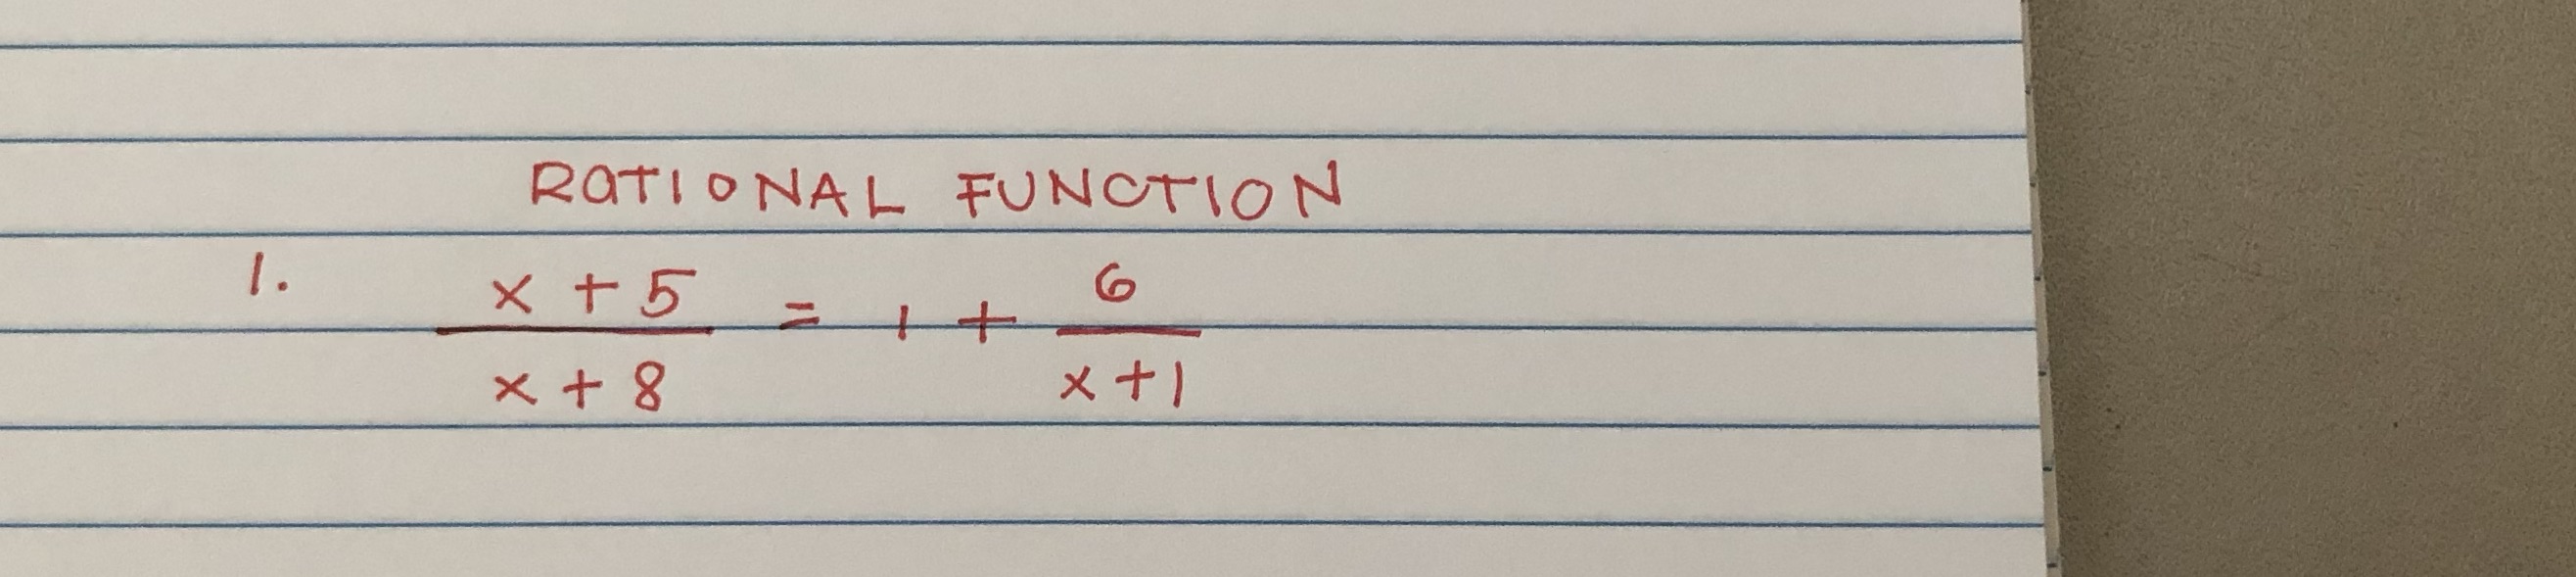 RATIONAL FUNCTION
1. x + 5 / x + 8 = 1 + 6 / x + 1